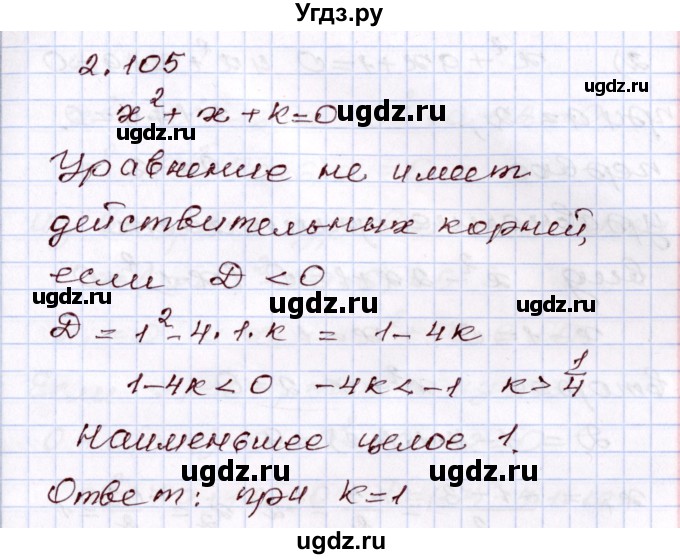 Угдз.ру
2.105
x² + x + k = 0 ugdz.ru
ugdz.ru
Уравнение не имеет
ugdz.ru
действительных корней,
ugdz.ru
если D < 0
ugdz.ru ugdz.ru
D = 1² - 4·1·k = 1 - 4k
ugdz.ru
1 - 4k < 0 -4k < -1 k > 1/4
ugdz.ru
Наименьшее целое 1.
ugdz.ru
ugdz.ru
Ответ: при k = 1
ugdz.ru
ugdz.ru